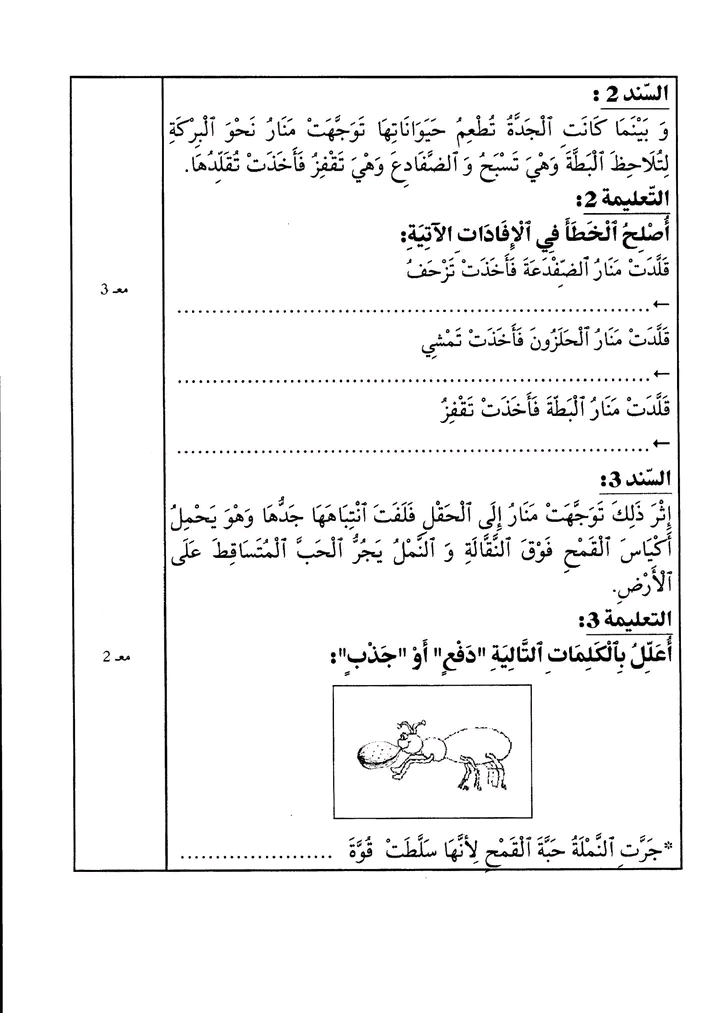 السّند 2 :
وَ بَيْنَمَا كَانَتِ ٱلْجَدَّةُ تُطْعِمُ حَيَوَانَاتِهَا تَوَجَّهَتْ مَنَارُ نَحْوَ ٱلْبِرْكَةِ
لِتُلَاحِظَ ٱلْبَطَّةَ وَهْيَ تَسْبَحُ وَ ٱلضَّفَادِعَ وَهْيَ تَقْفِزُ فَأَخَذَتْ تُقَلِّدُهَا.
التّعليمة 2:
أُصْلِحُ ٱلْخَطَأَ فِي ٱلْإِفَادَاتِ ٱلآتِيَةِ:
قَلَّدَتْ مَنَارُ ٱلضِّفْدَعَةَ فَأَخَذَتْ تَزْحَفُ
معـ 3
←......................................................................
قَلَّدَتْ مَنَارُ ٱلْحَلَزُونَ فَأَخَذَتْ تَمْشِي
←......................................................................
قَلَّدَتْ مَنَارُ ٱلْبَطَّةَ فَأَخَذَتْ تَقْفِزُ
←......................................................................
السّند 3:
إِثْرَ ذَلِكَ تَوَجَّهَتْ مَنَارُ إِلَى ٱلْحَقْلِ فَلَفَتَ ٱنْتِبَاهَهَا جَدُّهَا وَهْوَ يَحْمِلُ
أَكْيَاسَ ٱلْقَمْحِ فَوْقَ ٱلنَّقَّالَةِ وَ ٱلنَّمْلُ يَجُرُّ ٱلْحَبَّ ٱلْمُتَسَاقِطَ عَلَى
ٱلْأَرْضِ.
التعليمة 3:
أُعَلِّلُ بِٱلْكَلِمَاتِ ٱلتَّالِيَةِ "دَفْعٍ" أَوْ "جَذْبٍ":
معـ 2
*جَرَّتِ ٱلنَّمْلَةُ حَبَّةَ ٱلْقَمْحِ لِأَنَّهَا سَلَّطَتْ قُوَّةَ ......................